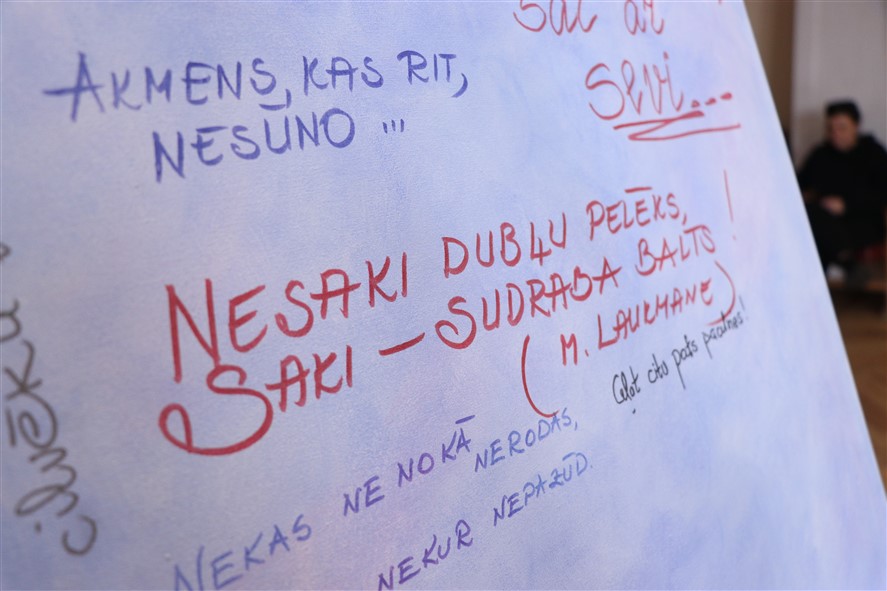 AKMENS, KAS RIT,
NESŪNO ...
Sāc ar
sevi...
NESAKI DUBĻU PELĒKS,
SAKI – SUDRABA BALTS!
(M. LAUKMANE)
Ceļot citu pats pacelies!
NEKAS NE NO KĀ NERODAS,
NEKUR NEPAZŪD.
cilvēku